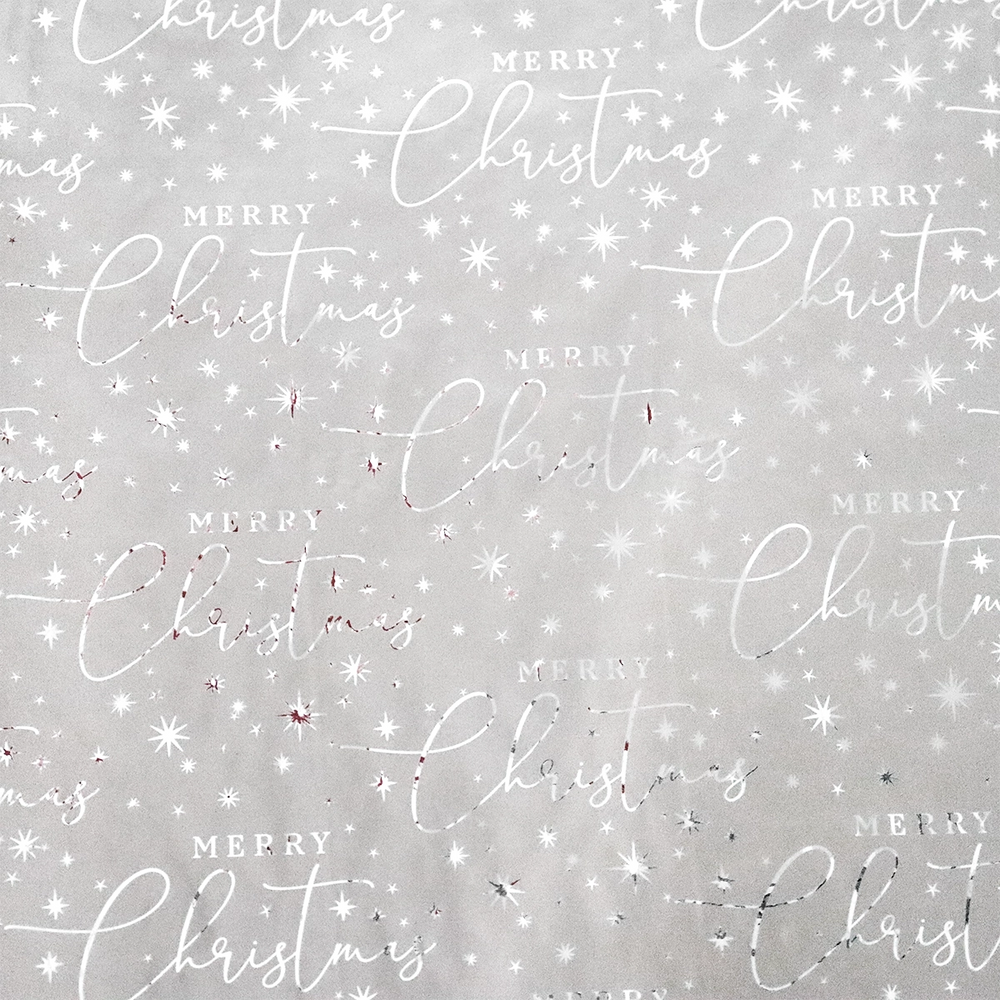 Christmas
Christmas
MERRY
Christmas
mas
MERRY
Christmas
MERRY
Christm
MERRY
Christmas
mas
MERRY
Christmas
MERRY
Christm
MERRY
Christmas
mas
MERRY
Christmas
MERRY
Christ
MERRY